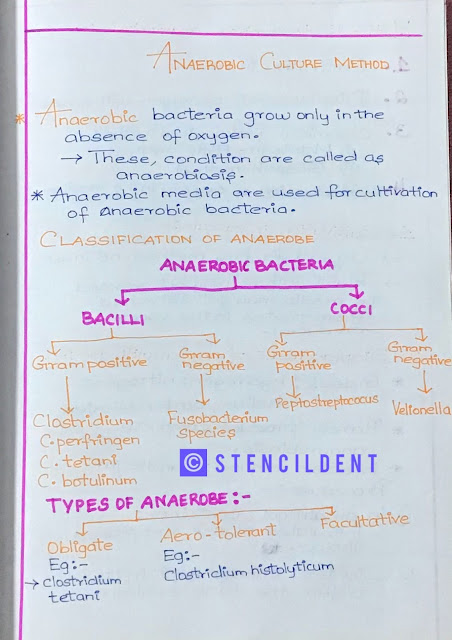 ANAEROBIC CULTURE METHOD.
* Anaerobic bacteria grow only in the
absence of oxygen.
→ These, condition are called as
anaerobiosis.
* Anaerobic media are used for cultivation
of anaerobic bacteria.
CLASSIFICATION OF ANAEROBE
ANAEROBIC BACTERIA
BACILLI
COCCI
Gram positive
Gram negative
Gram positive
Gram negative
Clostridium
C. perfringen
C. tetani
C. botulinum
Fusobacterium
Species
Peptostreptococcus
Vellonella
© STENCILDENT
TYPES OF ANAEROBE:-
Obligate
Eg:-
→ clostridium
tetani
Aero-tolerant
Eg:-
Clastridium histolyticum
Facultative